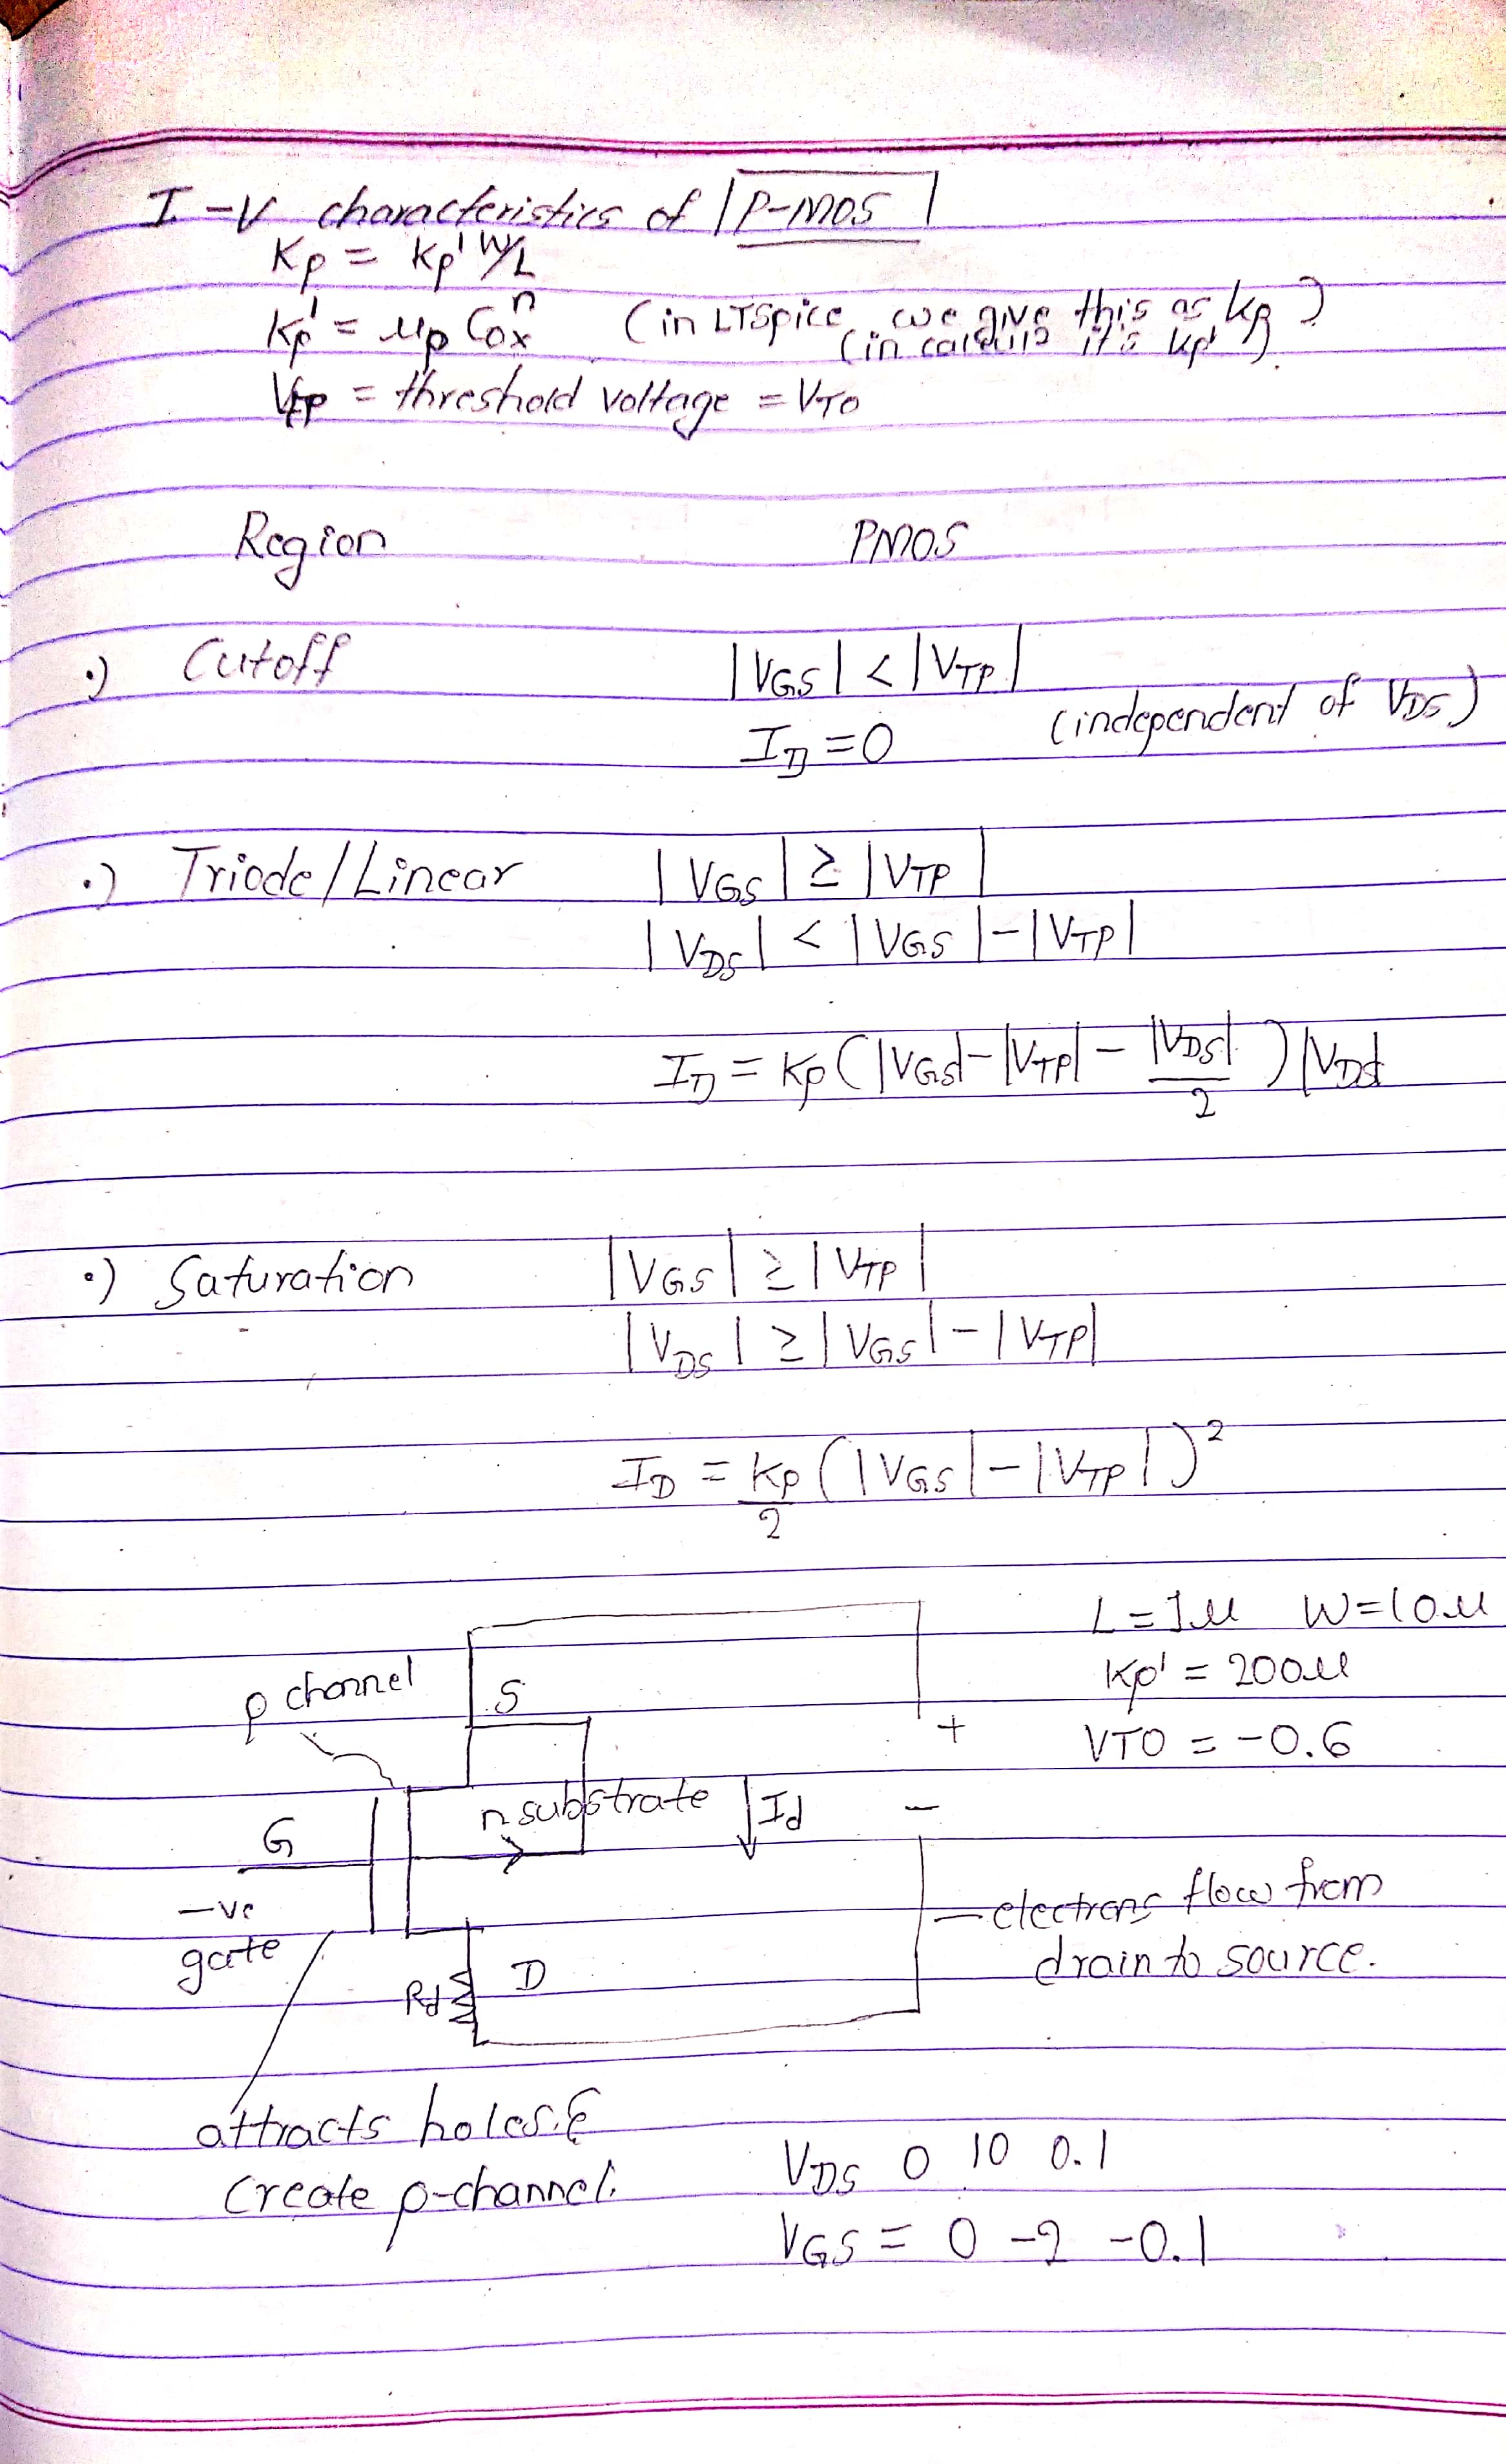 I-V characteristics of |P-MOS|
Kp = Kp' W/L
Kp' = μp Cox'' (in LTSpice we give this as kp)
(in calculs it's kp')
VTP = threshold voltage = VTO
Region PMOS
•) Cutoff |VGS| < |VTP|
ID = 0 (independent of VDS)
•) Triode/Linear |VGS| ≥ |VTP|
|VDS| < |VGS| - |VTP|
ID = Kp (|VGS| - |VTP| - |VDS|/2) |VDS|
•) Saturation |VGS| ≥ |VTP|
|VDS| ≥ |VGS| - |VTP|
ID = Kp/2 (|VGS| - |VTP|)²
L = 1μ W = 10μ
p channel S Kp' = 200μ
+ VTO = -0.6
G n substrate Id -
-ve
gate
- electrons flow from
drain to source.
Rd D
attracts holes &
create p-channel.
VDS 0 10 0.1
VGS = 0 -2 -0.1